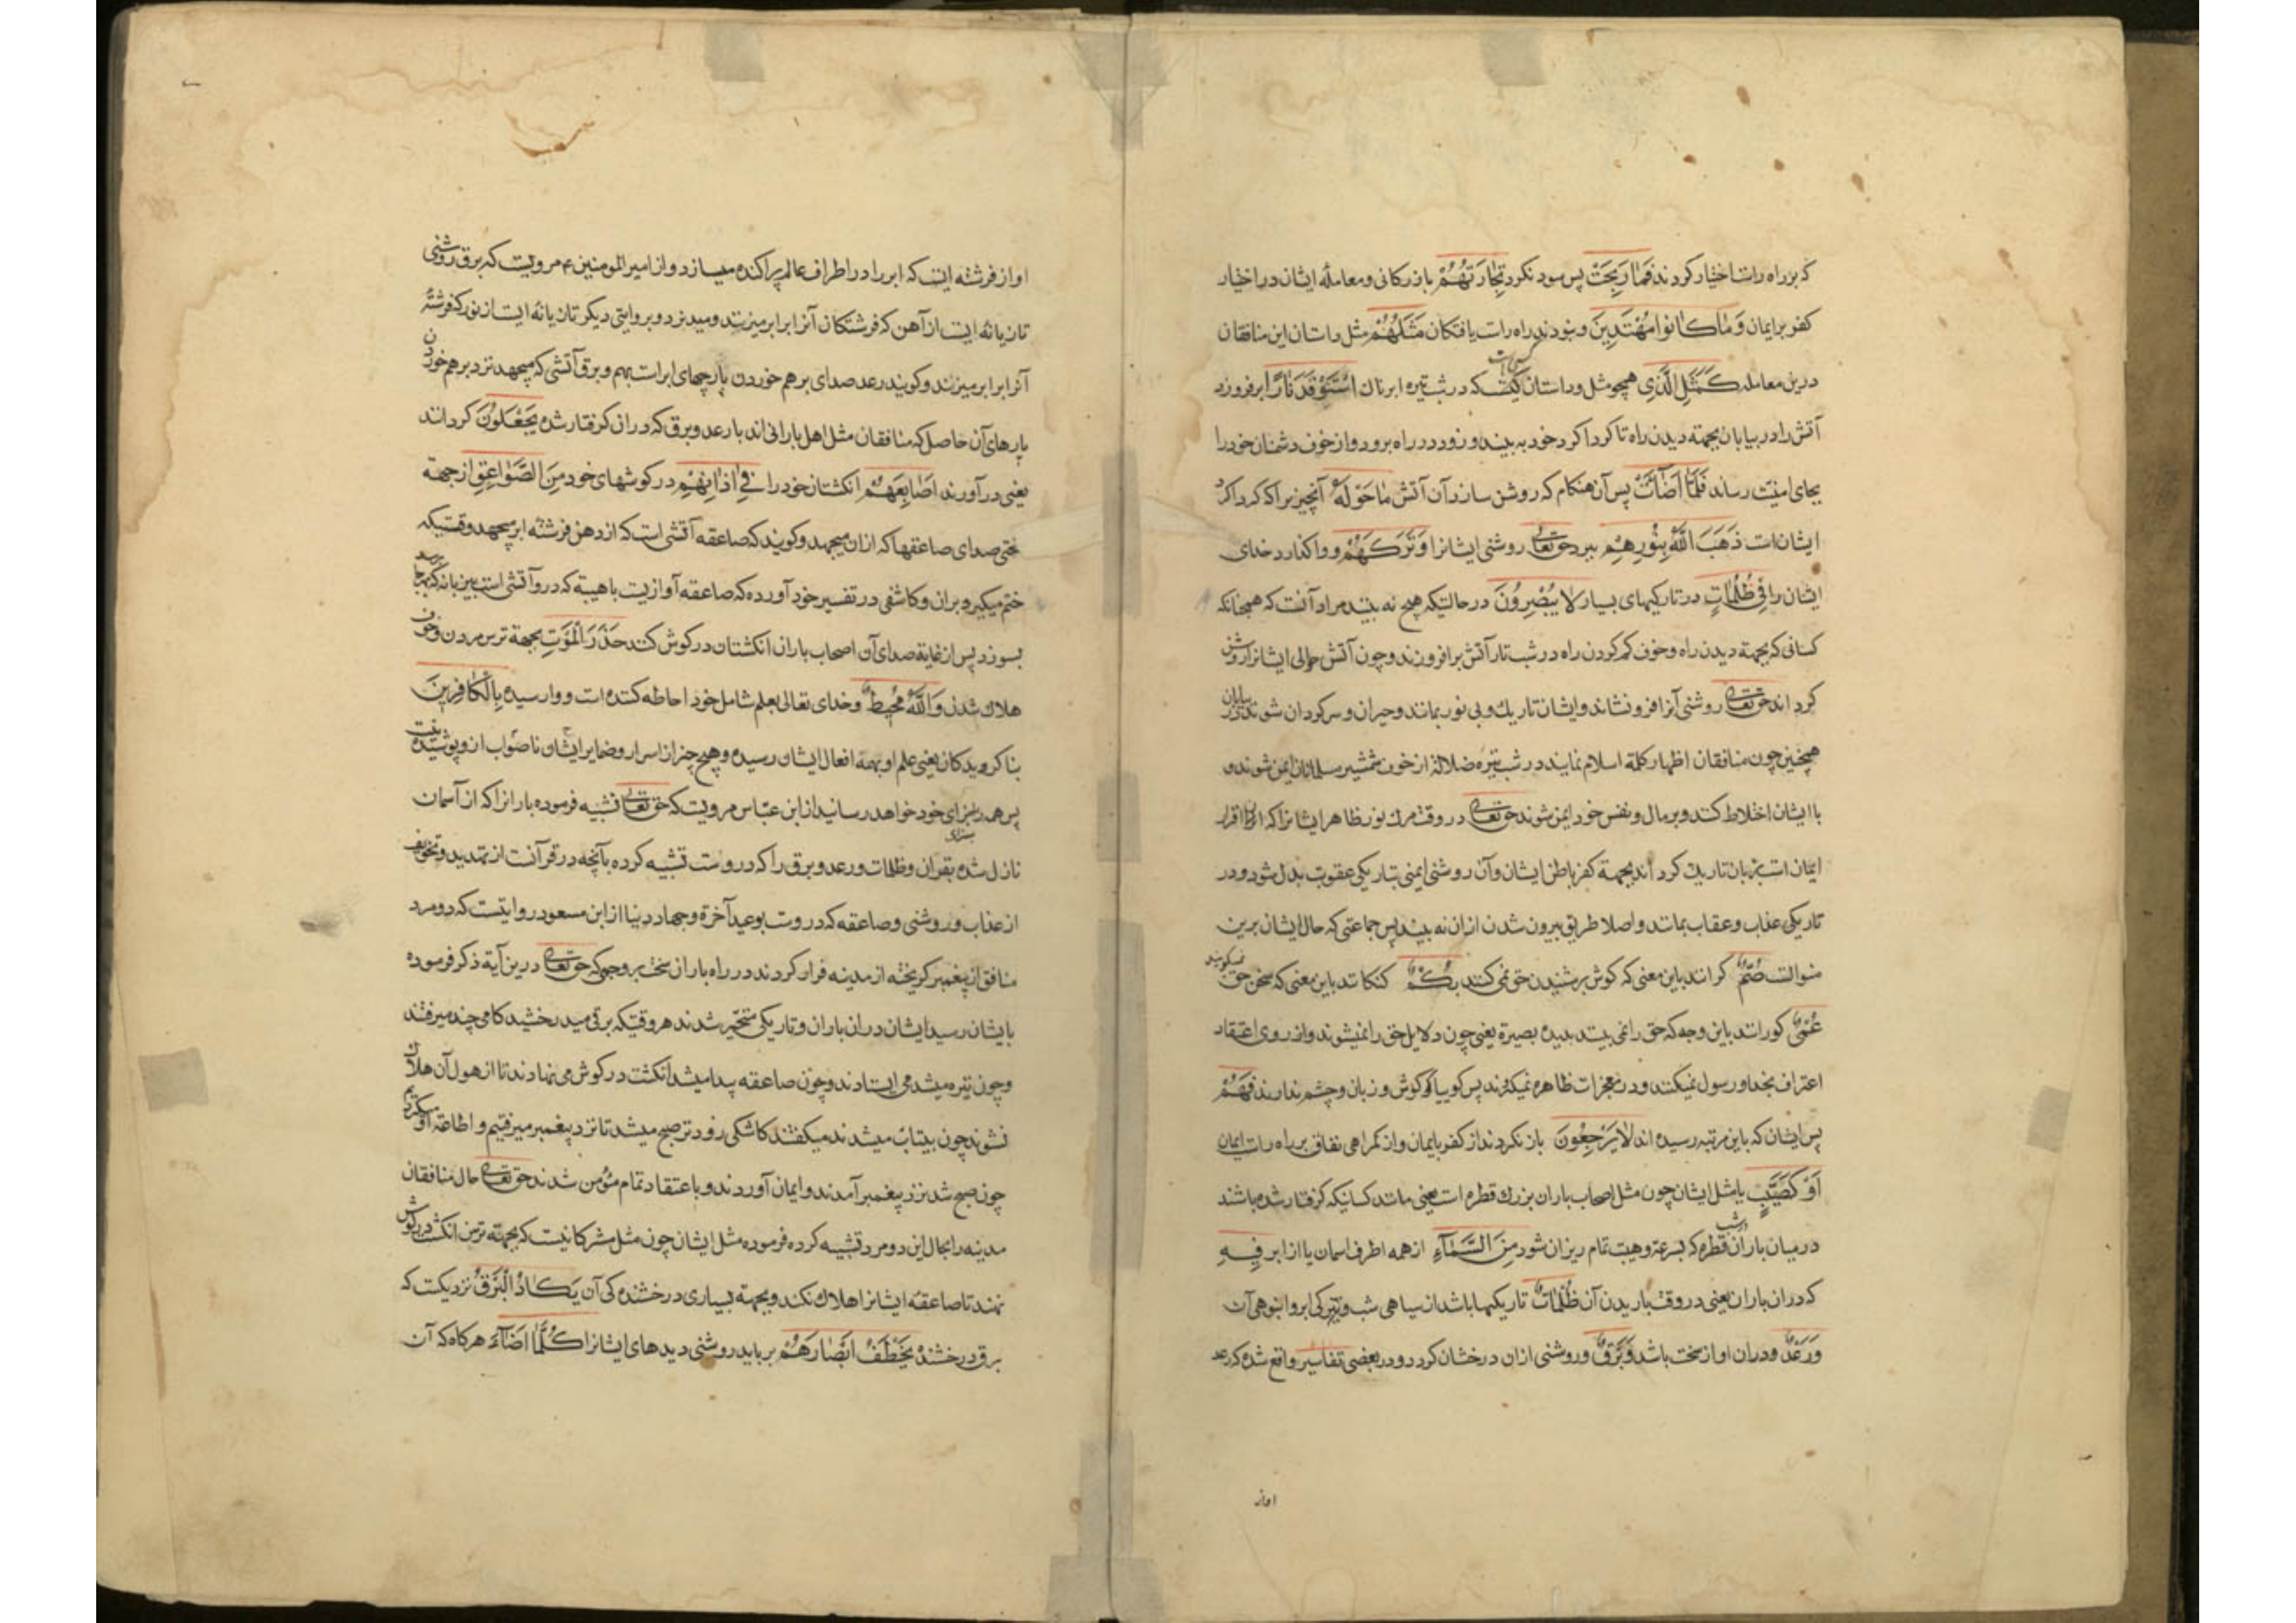 که بر راه راست اختیار کردند فَمَا رَبِحَتْ پس سود نکرد تِجَارَتُهُمْ بازرکانی و معاملهٔ ایشان در اختیار
کفر بر ایمان وَمَا كَانُوا مُهْتَدِينَ و نبودند راه راست یافتکان مَثَلُهُمْ مثل و داستان این منافقان
درین معامله كَمَثَلِ الَّذِي همچو مثل و داستان کسی است که در شب تیره ابرناک اسْتَوْقَدَ نَارًا برفروزد
آتش را در بیابان بجهة دیدن راه تا کرداکرد خود به بیند و زود در راه برود و از خوف دشمنان خود را
بجای امنیت رساند فَلَمَّا أَضَاءَتْ پس آن هنکام که روشن سازد آن آتش مَا حَوْلَهُ آنچیز را که کرداکرد
ایشان است ذَهَبَ اللَّهُ بِنُورِهِمْ ببرد حق تعالی روشنی ایشانرا وَتَرَكَهُمْ و واکذارد خدای
ایشان را فِي ظُلُمَاتٍ در تاریکیهای بسیار لَا يُبْصِرُونَ در حالتیکه هیچ نه بینند مراد آنست که همچنانکه
کسانی که بجهة دیدن راه و خوف کم کردن راه در شب تار آتش برافروزند و چون آتش حوالی ایشانرا روشن
کرداند حق تعالی روشنی آنرا فرو نشاند و ایشان تاریک و بی نور بمانند و حیران و سرکردان شوند در بیابان
همچنین چون منافقان اظهار کلمهٔ اسلام نمایند در شب تیره ضلالة از خون شمشیر مسلمانان ایمن شوند و
با ایشان اختلاط کنند و بر مال و نفس خود ایمن شوند حق تعالی در وقت مرک نور ظاهر ایشانرا که آن اقرار
ایمان است بزبان تاریک کرداند بجهة کفر باطن ایشان و آن روشنی ایمنی بتاریکی عقوبت بدل شود و در
تاریکی عذاب و عقاب بمانند و اصلا طریق بیرون شدن ازان نه بینند پس جماعتی که حال ایشان برین
منوالست صُمٌّ کرانند باین معنی که کوش بر شنیدن حق نمی کنند بُكْمٌ کنکانند باین معنی که سخن حق نمیکویند
عُمْيٌ کورانند باین وجه که حق را نمی بینند بدیده بصیرة یعنی چون دلایل حق را نمیشنوند و از روی اعتقاد
اعتراف بخدا و رسول نمیکنند و در معجزات ظاهره نمیکرند پس کوییا که کوش و زبان و چشم ندارند فَهُمْ
پس ایشان که باین مرتبه رسیده اند لَا يَرْجِعُونَ باز نکردند از کفر بایمان و از کمراهی نفاق بر راه راست ایمان
أَوْ كَصَيِّبٍ یا مثل ایشان چون مثل اصحاب باران بزرک قطره است یعنی مانند کسانیکه کرفتار شده باشند
در میان باران قطره که بسرعة و هیبت تمام ریزان شود در شب مِنَ السَّمَاءِ از همه اطراف اسمان یا از ابر فِيهِ
که دران باران یعنی در وقت باریدن آن ظُلُمَاتٌ تاریکیها باشد ازسیاهی شب و تیرکی ابر و انبوهی آن
وَرَعْدٌ و دران اواز سخت باشد وَبَرْقٌ و روشنی ازان درخشان کردد و در بعضی تفاسیر واقع شده که رعد
اواز
اواز فرشته ایست که ابر را در اطراف عالم پراکنده میسازد و از امیر المومنین ع مرویست که برق روشنی
تازیانهٔ ایست از آهن که فرشتکان آنرا بر ابر میزنند و میدرد و بروایتی دیکر تازیانهٔ ایست از نور که فرشتهٔ
آنرا بر ابر میزند و کویند رعد صدای برهم خوردن پارچهای ابر است بهم و برق آتشی که میجهد نزد برهم خوردن
پارهای آن حاصل که منافقان مثل اهل بارانی اند با رعد و برق که دران کرفتار شده يَجْعَلُونَ کردانند
یعنی در آورند أَصَابِعَهُمْ انکشتان خود را فِي آذَانِهِمْ در کوشهای خود مِنَ الصَّوَاعِقِ از جهة
سختی صدای صاعقها که ازان میجهد و کویند که صاعقه آتشی است که از دهن فرشته ابر میجهد وقتیکه
خشم میکیرد بران و کاشفی در تفسیر خود آورده که صاعقه آوازیست با هیبة که درو آتشی است بی زبانه که بهرجا برسد
بسوزد پس از غایة صدای آن اصحاب باران انکشتان در کوش کنند حَذَرَ الْمَوْتِ بجهة ترس مردن و خوف
هلاک شدن وَاللَّهُ مُحِيطٌ و خدای تعالی بعلم شامل خود احاطه کننده است و وا رسیده بِالْكَافِرِينَ
بنا کرویدکان یعنی علم او بهمه افعال ایشان رسیده و هیچ چیز از اسرار و ضمایر ایشان ناصواب ازو پوشیده نیست
پس همه را بجزای خود خواهد رسانید از ابن عباس مرویست که حق تعالی تشبیه فرموده بارانرا که از آسمان
نازل شده بقران و ظلمات و رعد و برق را که دروست تشبیه کرده بآنچه در قرآنست از تهدید و تخویف
از عذاب و روشنی و صاعقه که دروست بوعید آخرة و جهاد دنیا از ابن مسعود روایتست که دو مرد
منافق از پیغمبر کریخته از مدینه فرار کردند در راه باران سخت بر وجهی که حق تعالی درین آیة ذکر فرموده
بایشان رسید ایشان دران باران و تاریکی متحیر شدند هر وقتیکه برقی میدرخشید کامی چند میرفتند
و چون تیره میشد می ایستادند و چون صاعقه پیدا میشد انکشت در کوش می نهادند تا از هول آن هلاک
نشوند چون بیتاب میشدند میکفتند کاشکی زودتر صبح میشد تا نزد پیغمبر میرفتیم و اطاعة او میکردیم
چون صبح شد نزد پیغمبر آمدند و ایمان آوردند و با عتقاد تمام مؤمن شدند حق تعالی حال منافقان
مدینه را بحال این دو مرد تشبیه کرده فرموده مثل ایشان چون مثل مشرکانیست که بجهة ترس انکشت در کوش
نهند تا صاعقه ایشانرا هلاک نکند و بجهة بسیاری درخشنده کی آن يَكَادُ الْبَرْقُ نزدیکست که
برق درخشنده يَخْطَفُ أَبْصَارَهُمْ برباید روشنی دیدهای ایشانرا كُلَّمَا أَضَاءَ هرکاه که آن